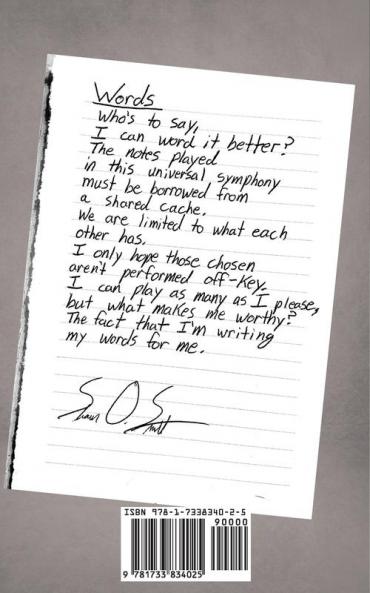 Words
Who's to say,
I can word it better?
The notes played
in this universal symphony
must be borrowed from
a shared cache.
We are limited to what each
other has.
I only hope those chosen
aren't performed off-key.
I can play as many as I please,
but what makes me worthy?
The fact that I'm writing
my words for me.
Shawn O. Smitt
ISBN 978-1-7338340-2-5
90000
9 781733 834025